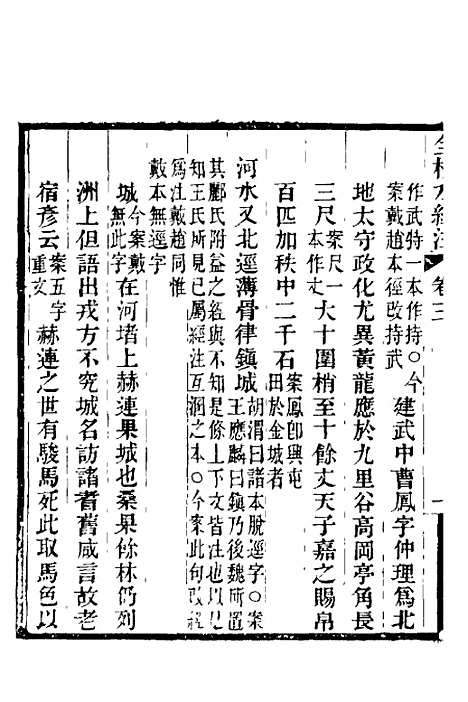 全校水經注 卷三
作武特一本作持〇今
案戴趙本徑改持武
建武中曹鳳字仲理爲北
地太守政化尤異黃龍應於九里谷高岡亭角長
三尺案尺一
本作丈大十圍梢至十餘丈天子嘉之賜帛
百匹加秩中二千石案鳳卽興屯
田於金城者
河水又北逕薄骨律鎭城胡渭曰諸本脫逕字〇案
王應麟曰鎭乃後魏所置
其酈氏附益之經與不知是條上下文皆注也以
知王氏所見已屬經注互溷之本〇今案此句改經
爲注戴趙同惟
戴本無逕字
城今案戴
無此字在河堵上赫連果城也桑果餘林仍列
洲上但語出戎方不究城名訪諸耆舊咸言故老
宿彥云案五字
重文赫連之世有駿馬死此取馬色以